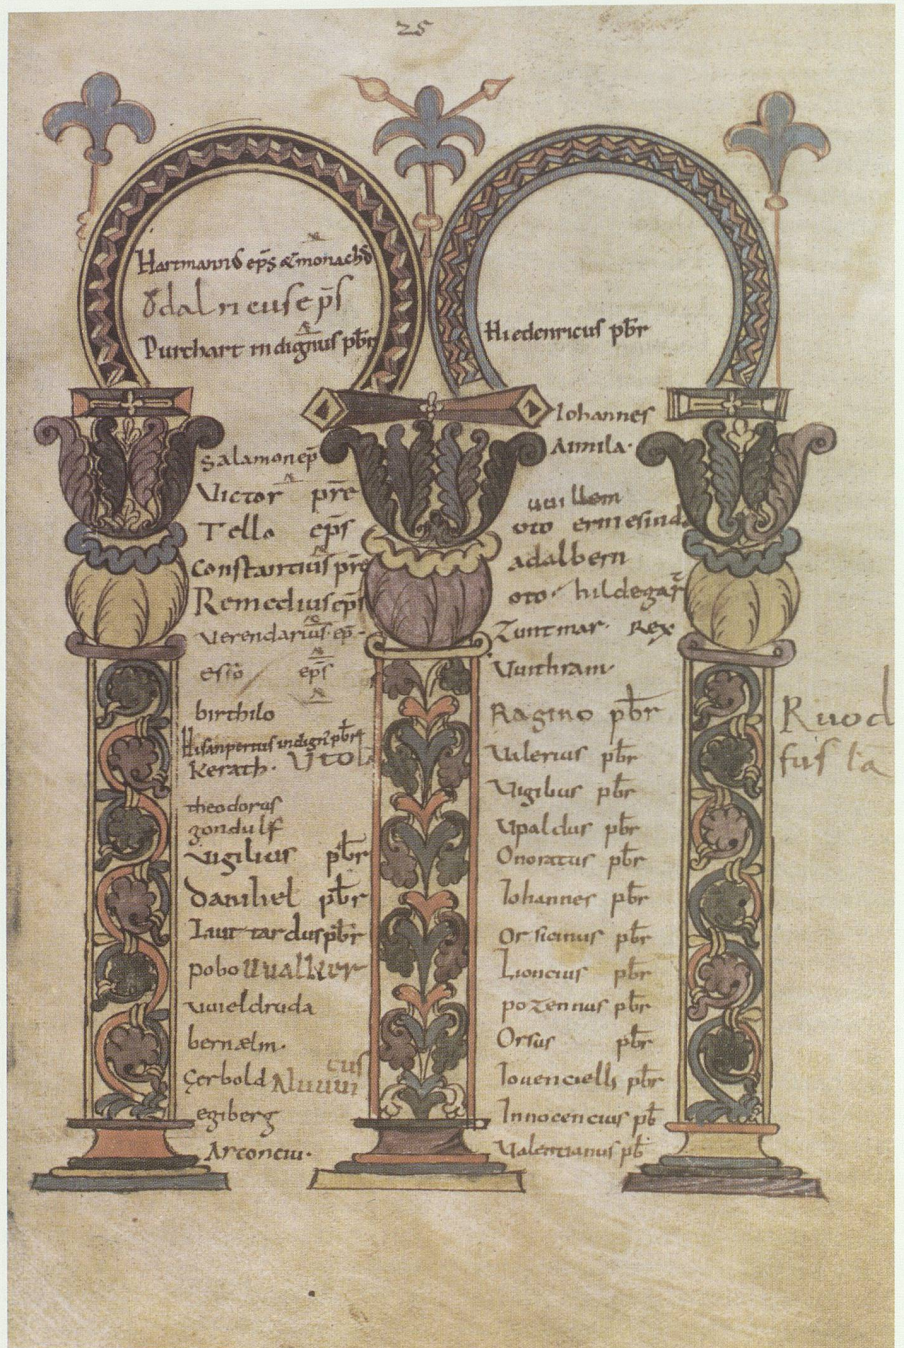 25
Hartmann᷒ ep̄s & monach᷒
Ŏdalricus ep̄s
Purchart indignus pb̄r
Salamon ep̄
Victor pr̄e
Tello ep̄s
Constantius pr̄e
Remedius ep̄s
Verendarius ep̄
esso ep̄s
birthilo
Hisinpertus indign᷒ pb̄r
Kerath. Uto
theodorus
gondulf
Vigilius pb̄r
Danihel pb̄r
pobo Uualker
Uuieldruda
bernælm.
Gerbold
egiberg
Hiedenricus pb̄r
Iohannes
Aimila.
uuillem
oto ermesind
adalbern
oto. hildegar
Zuntmar. Rex
Vunthram.
Ragino pb̄r
Valerius pb̄r
Vigibus pb̄r
Vpaldus pb̄r
Onoratus pb̄r
Iohannes pb̄r
Orsicinus pb̄r
Lioncius pb̄r
pozennus pb̄r
Orsus pb̄r
Iouenciells pb̄r
Innocencius pb̄
Valentianus pb̄
Ruod